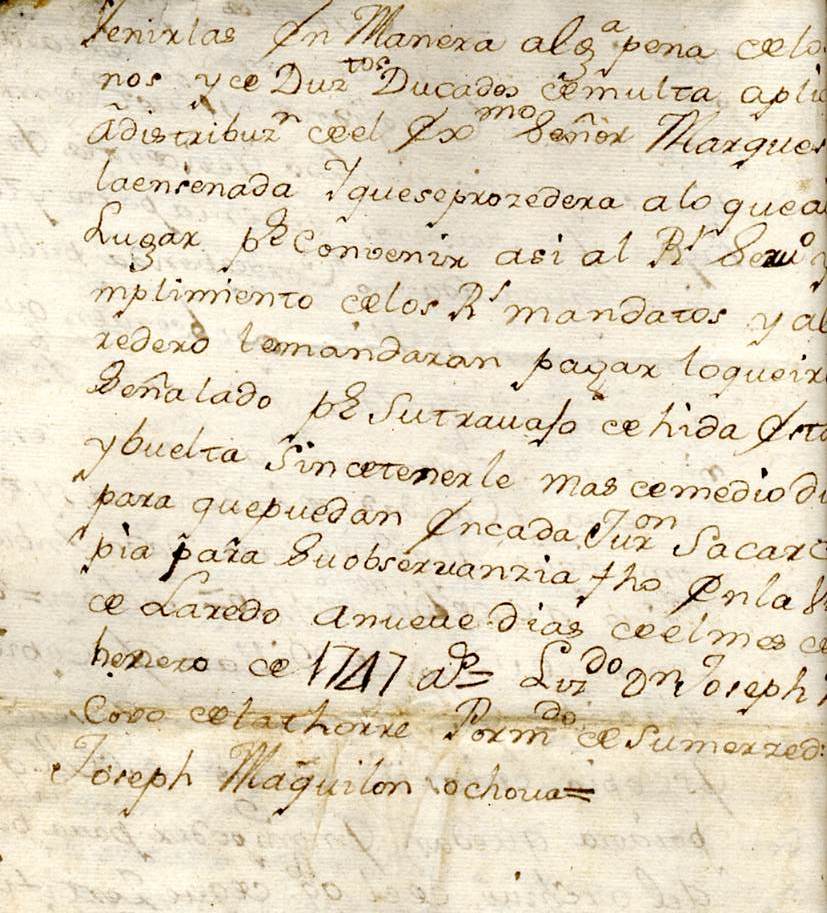 Venirlas En Manera alg.ª pena celo
nos y ce Duz.tos Ducados cemulta aplic
adistribuz.n ceel Ex.mo Señor Marques
laensenada Iqueseprozedera alo quea
Lugar p.r Convenir asi al R.l Seru.o y
mplimiento celos R.s mandatos y al
redero lemandaran pagar loqueir
Señalado p.r Sutrauajo ce hida Esta
ybuelta Sin cetenerle mas cemedio di
para quepuedan Encada Jur.on Sacarc
pia para Suobseruanzia fho Enla V
ce Laredo anueue dias ceelmes ce
henero ce 1747 a.s = Liz.do D.n Joseph
Covo celathorre Porm.do ce sumerzed:
Joseph Maguilon ochoua=